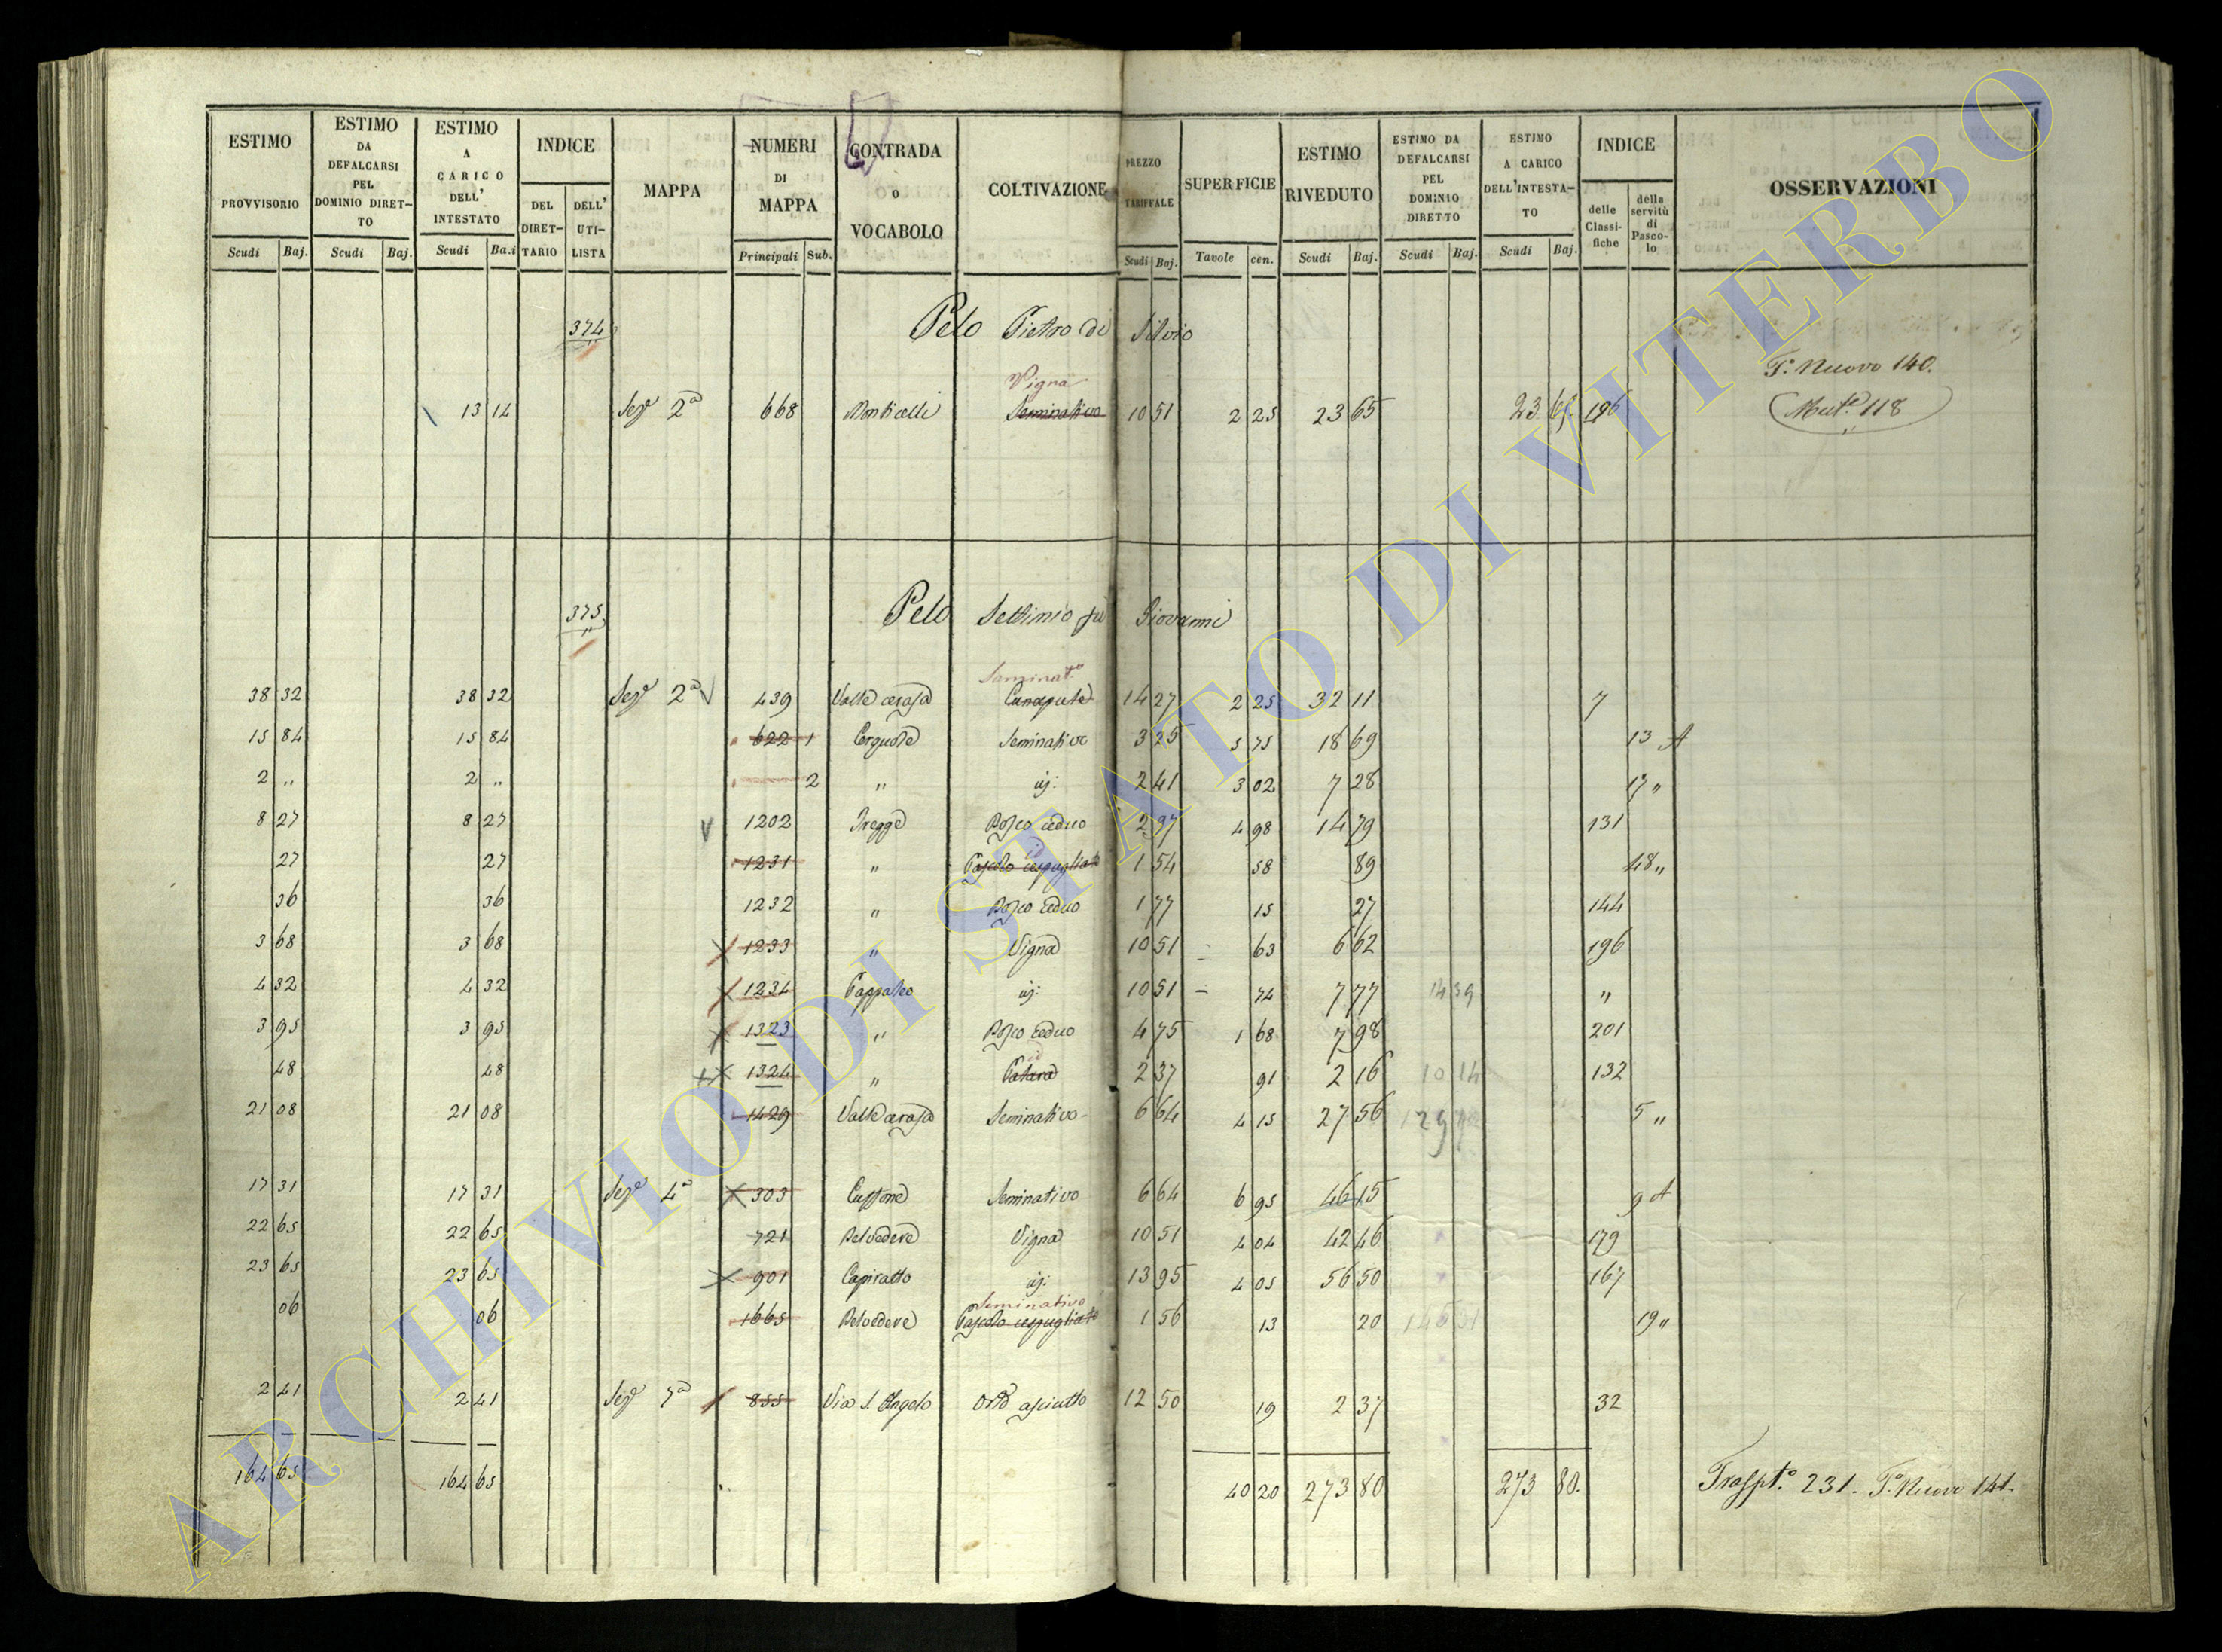 ESTIMO PROVVISORIO
Scudi Baj.
ESTIMO DA DEFALCARSI PEL DOMINIO DIRET-TO
Scudi Baj.
ESTIMO A CARICO DELL' INTESTATO
Scudi Ba.i
INDICE
DEL DIRET-TARIO
DELL' UTI-LISTA
MAPPA
NUMERI DI MAPPA
Principali Sub.
CONTRADA o VOCABOLO
COLTIVAZIONE
PREZZO TARIFFALE
Scudi Baj.
SUPERFICIE
Tavole cen.
ESTIMO RIVEDUTO
Scudi Baj.
ESTIMO DA DEFALCARSI PEL DOMINIO DIRETTO
Scudi Baj.
ESTIMO A CARICO DELL'INTESTA-TO
Scudi Baj.
INDICE
delle Classi-fiche
della servitù di Pasco-lo
OSSERVAZIONI
374 Pelo Pietro di Silvio
T.º Nuovo 140.
Vigna
13 14 Sez.e 2ª 668 Monticelli Seminativo 10 51 2 25 23 65 23 65 196 Mut.e 118
375 Pelo Settimio fu Giovanni
Seminat.o
38 32 38 32 Sez.e 2ª 439 Valle cerasa Canapule 14 27 2 25 32 11 7
15 84 15 84 622 1 Cerquole Seminativo 3 25 5 75 18 69 13 A
2 " 2 " 2 " id: 2 41 3 02 7 28 17 "
8 27 8 27 1202 Bosco ceduo 2 97 4 98 14 79 131
27 27 1231 " Pascolo cespugliato 1 54 58 89 18 "
36 36 1232 " Bosco ceduo 1 77 15 27 144
3 68 3 68 1233 " Vigna 10 51 - 63 6 62 196
4 32 4 32 1234 Pappaleo id: 10 51 - 74 7 77 14 39 "
3 95 3 95 1323 " Bosco ceduo 4 75 1 68 7 98 201
48 48 1324 " 2 37 91 2 16 10 14 132
21 08 21 08 1429 Valle cerasa Seminativo 6 64 4 15 27 56 5 "
17 31 17 31 Sez.e 4ª 303 Seminativo 6 64 6 95 46 15 9 A
22 65 22 65 721 Belvedere Vigna 10 51 4 04 42 46 179
23 65 23 65 901 Capiratto id: 13 95 4 05 56 50 167
Seminativo
06 06 1665 Belvedere Pascolo cespugliato 1 56 13 20 19 "
2 41 2 41 Sez.e 7ª 855 Via S. Angelo Orto asciutto 12 50 19 2 37 32
164 65 164 65 40 20 273 80 273 80. Traspt.º 231. T.º Nuovo 141.
ARCHIVIO DI STATO DI VITERBO